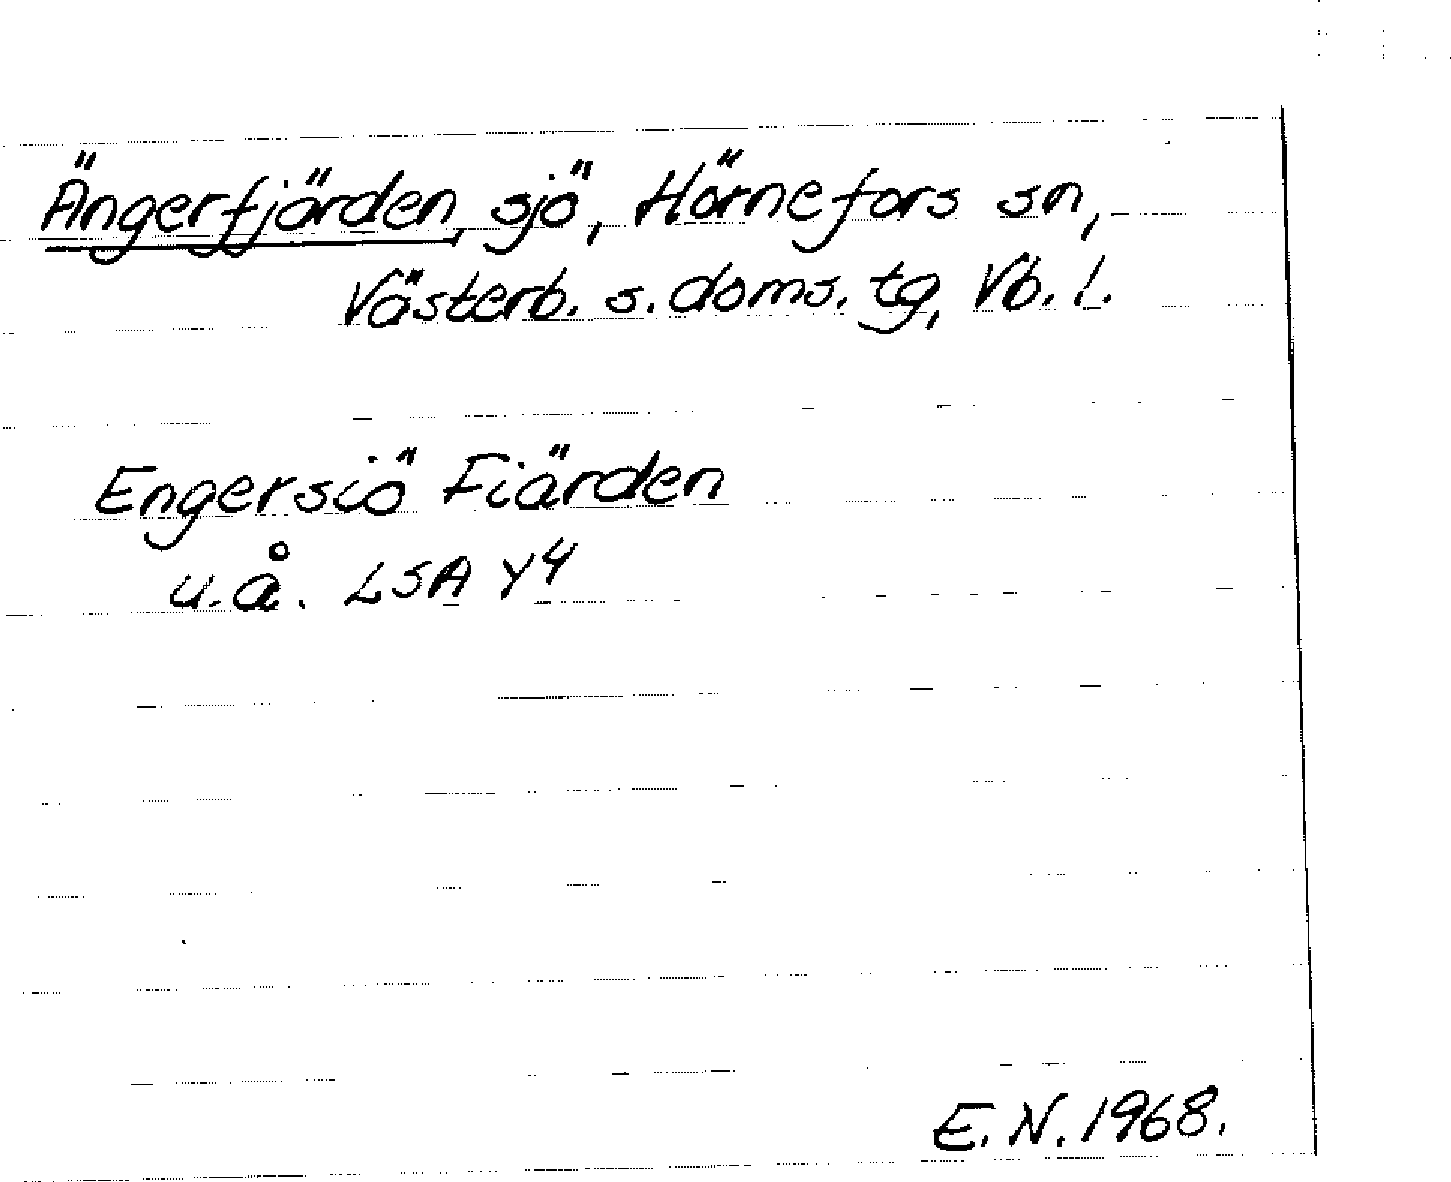 Ängerfjärden, sjö, Hörnefors sn,
Västerb. s. doms. tg, Vb. l.
Engersiö Fiärden
u.å. LSA Y4
E. N. 1968.